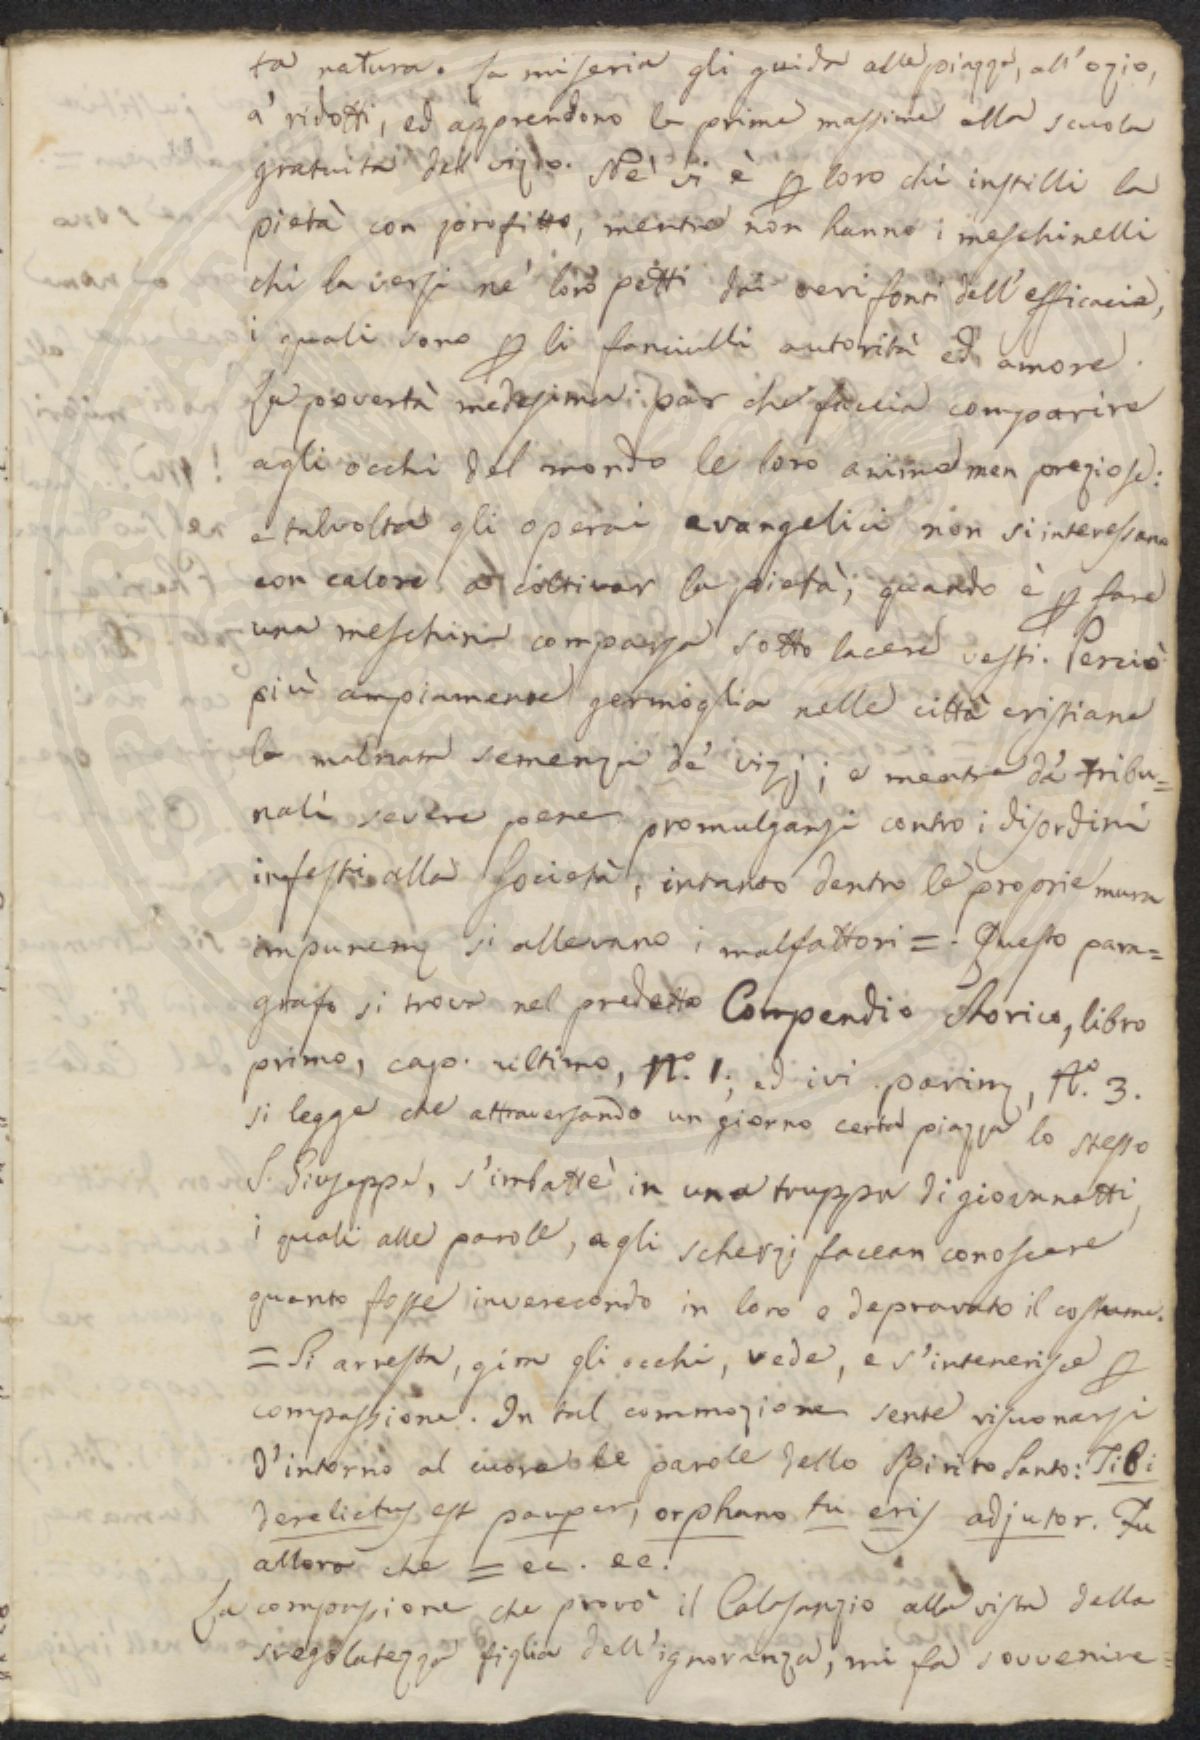 ta natura. La miseria gli guida alle piazze, all'ozio,
a' ridotti, ed apprendono le prime massime alla scuola
gratuita del vizio. Nè vi è p loro chi instilli la
pietà con profitto, mentre non hanno i meschinelli
chi la versi ne' loro petti dai veri fonti dell'efficacia,
i quali sono p li fanciulli autorità ed amore.
La povertà medesima par che faccia comparire
agli occhi del mondo le loro anime men preziose:
e talvolta gli operai evangelici non si interessano
con calore a coltivar la pietà; quando è p fare
una meschina comparsa sotto lacere vesti. Perciò
più ampiamente germoglia nelle città cristiane
la malnata semenza de' vizj; e mentre da' tribu=
nali severe pene promulgansi contro i disordini
infesti alla Società, intanto dentro le proprie mura
impunem si allevano i malfattori =. Questo para=
grafo si trova nel predetto Compendio Storico, libro
primo, cap. ultimo, N.º 1.; ed ivi parim, N.º 3.
si legge che attraversando un giorno certa piazza lo stesso
S. Giuseppe, s'imbattè in una truppa di giovanotti,
i quali alle parole, agli scherzi facean conoscere
quanto fosse inverecondo in loro e depravato il costume.
= Si arresta, gira gli occhi, vede, e s'intenerisce p
compassione. In tal commozione sente risuonarsi
d'intorno al cuore le parole dello Spirito Santo: Tibi
derelictus est pauper, orphano tu eris adjutor. Fu
allora che = ec. ec.
La compassione che provò il Calasanzio alla vista della
sregolatezza figlia dell'ignoranza, mi fa sovvenire=